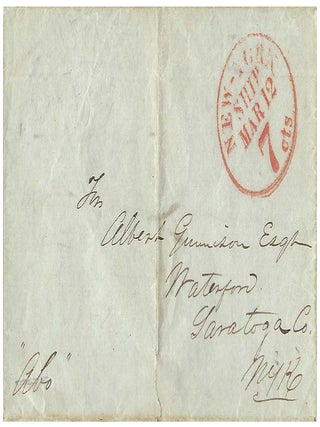 NEW-YORK
SHIP
MAR 12
7 cts
For
Albert Gunnison Esqr
Waterford.
Saratoga Co.
"Abo"